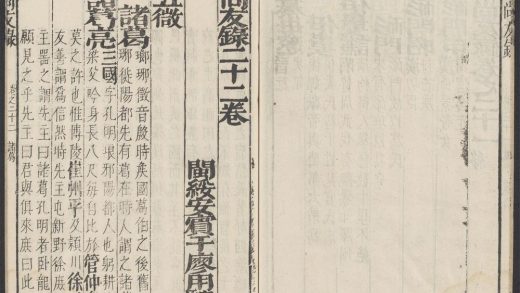 尚友錄
尚友錄二十二卷
閩綏安賓于廖用
五微
諸葛
瑯琊徵音殷時侯國葛伯之後舊
琊徙陽都先有葛在時人謂之諸
諸葛亮 三國字孔明琅琊陽都人也躬耕
梁父吟身長八尺每自比於管仲
莫之許也惟博陵崔州平及潁川徐
友善謂爲信然時先主屯新野徐庶
主器之謂先主曰諸葛孔明者卧龍
願見之乎先主曰君與俱來庶曰此
尚友錄 卷之二十二 諸葛